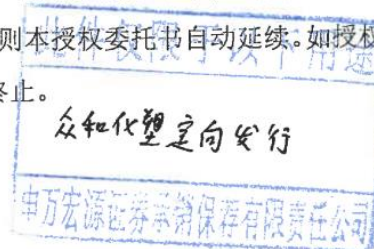 则本授权委托书自动延续。如授权
此件仅限于以下用途
终止。
众和化塑定向发行
申万宏源证券承销保荐有限责任公司